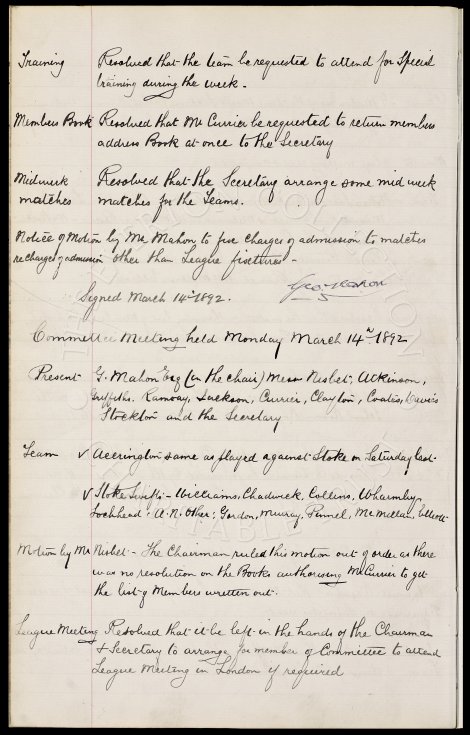 Training Resolved that the team be requested to attend for Special
training during the week.
Members Book Resolved that Mr Currier be requested to return members
address Book at once to the Secretary
Midweek Resolved that the Secretary arrange some mid week
matches matches for the Teams.
Notice of Motion by Mr Mahon to fix charges of admission to matches
re charges of admission other than League fixtures -
Signed March 14th 1892. Geo Mahon
Committee Meeting held Monday March 14th 1892
Present G. Mahon Esq (in the chair) Messrs Nisbet, Atkinson,
Griffiths. Ramsay, Jackson, Currier, Clayton, Coates, Davies
Stockton and the Secretary
Team v Accrington same as played against Stoke on Saturday last.
v Stoke Swifts:- Williams, Chadwick, Collins, Wharmby,
Lochhead. A. N. Other; Gordon, Murray, Pinnel, McMillan, Elliott
Motion by Mr Nisbet - The Chairman ruled this motion out of order as there
was no resolution on the Books authorising Mr Currier to get
the list of Members written out.
League Meeting Resolved that it be left in the hands of the Chairman
& Secretary to arrange for member of Committee to attend
League Meeting in London if required